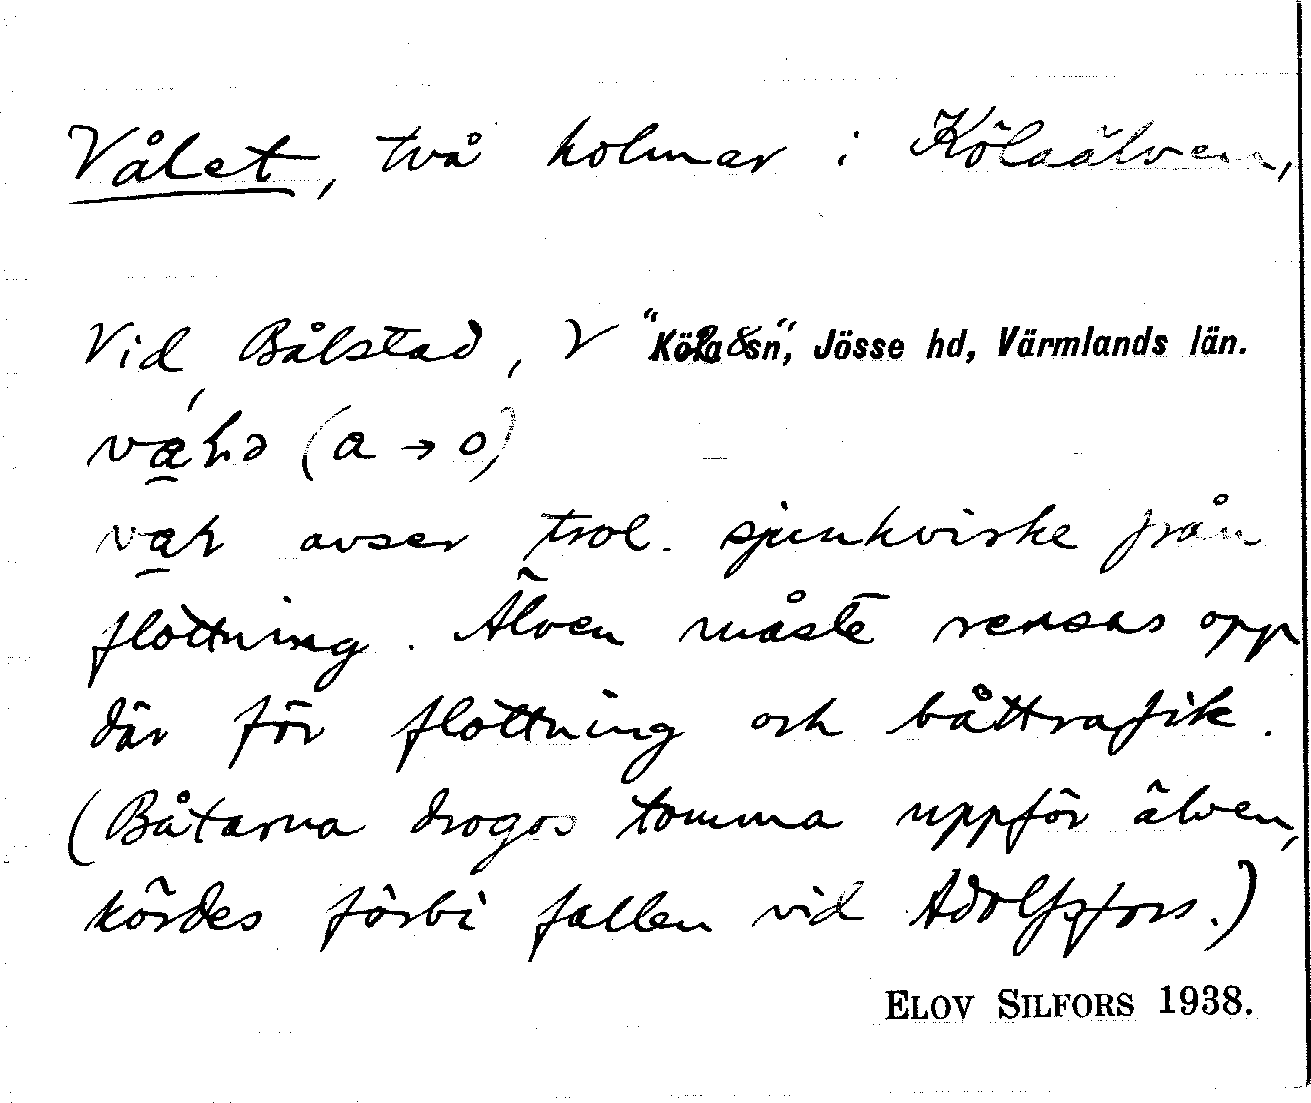 Vålet, två holmar i Kölaälven,
Vid Bålstad, V "Köla sn", Jösse hd, Värmlands län.
(a → o)
avser trol. sjunkvirke från
flottning. Älven måste rensas opp
där för flottning och båttrafik.
(Båtarna drogos tomma uppför älven,
kördes förbi fallen vid Adolfsfors.)
ELOV SILFORS 1938.